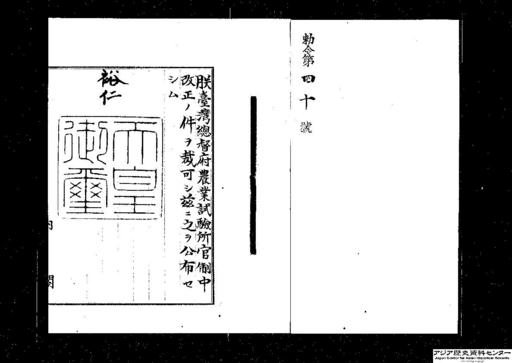 勅令第四十號
朕臺灣總督府農業試驗所官制中
改正ノ件ヲ裁可シ茲ニ之ヲ公布セ
シム
裕仁
天皇
御璽
内閣
アジア歴史資料センター
Japan Center for Asian Historical Records